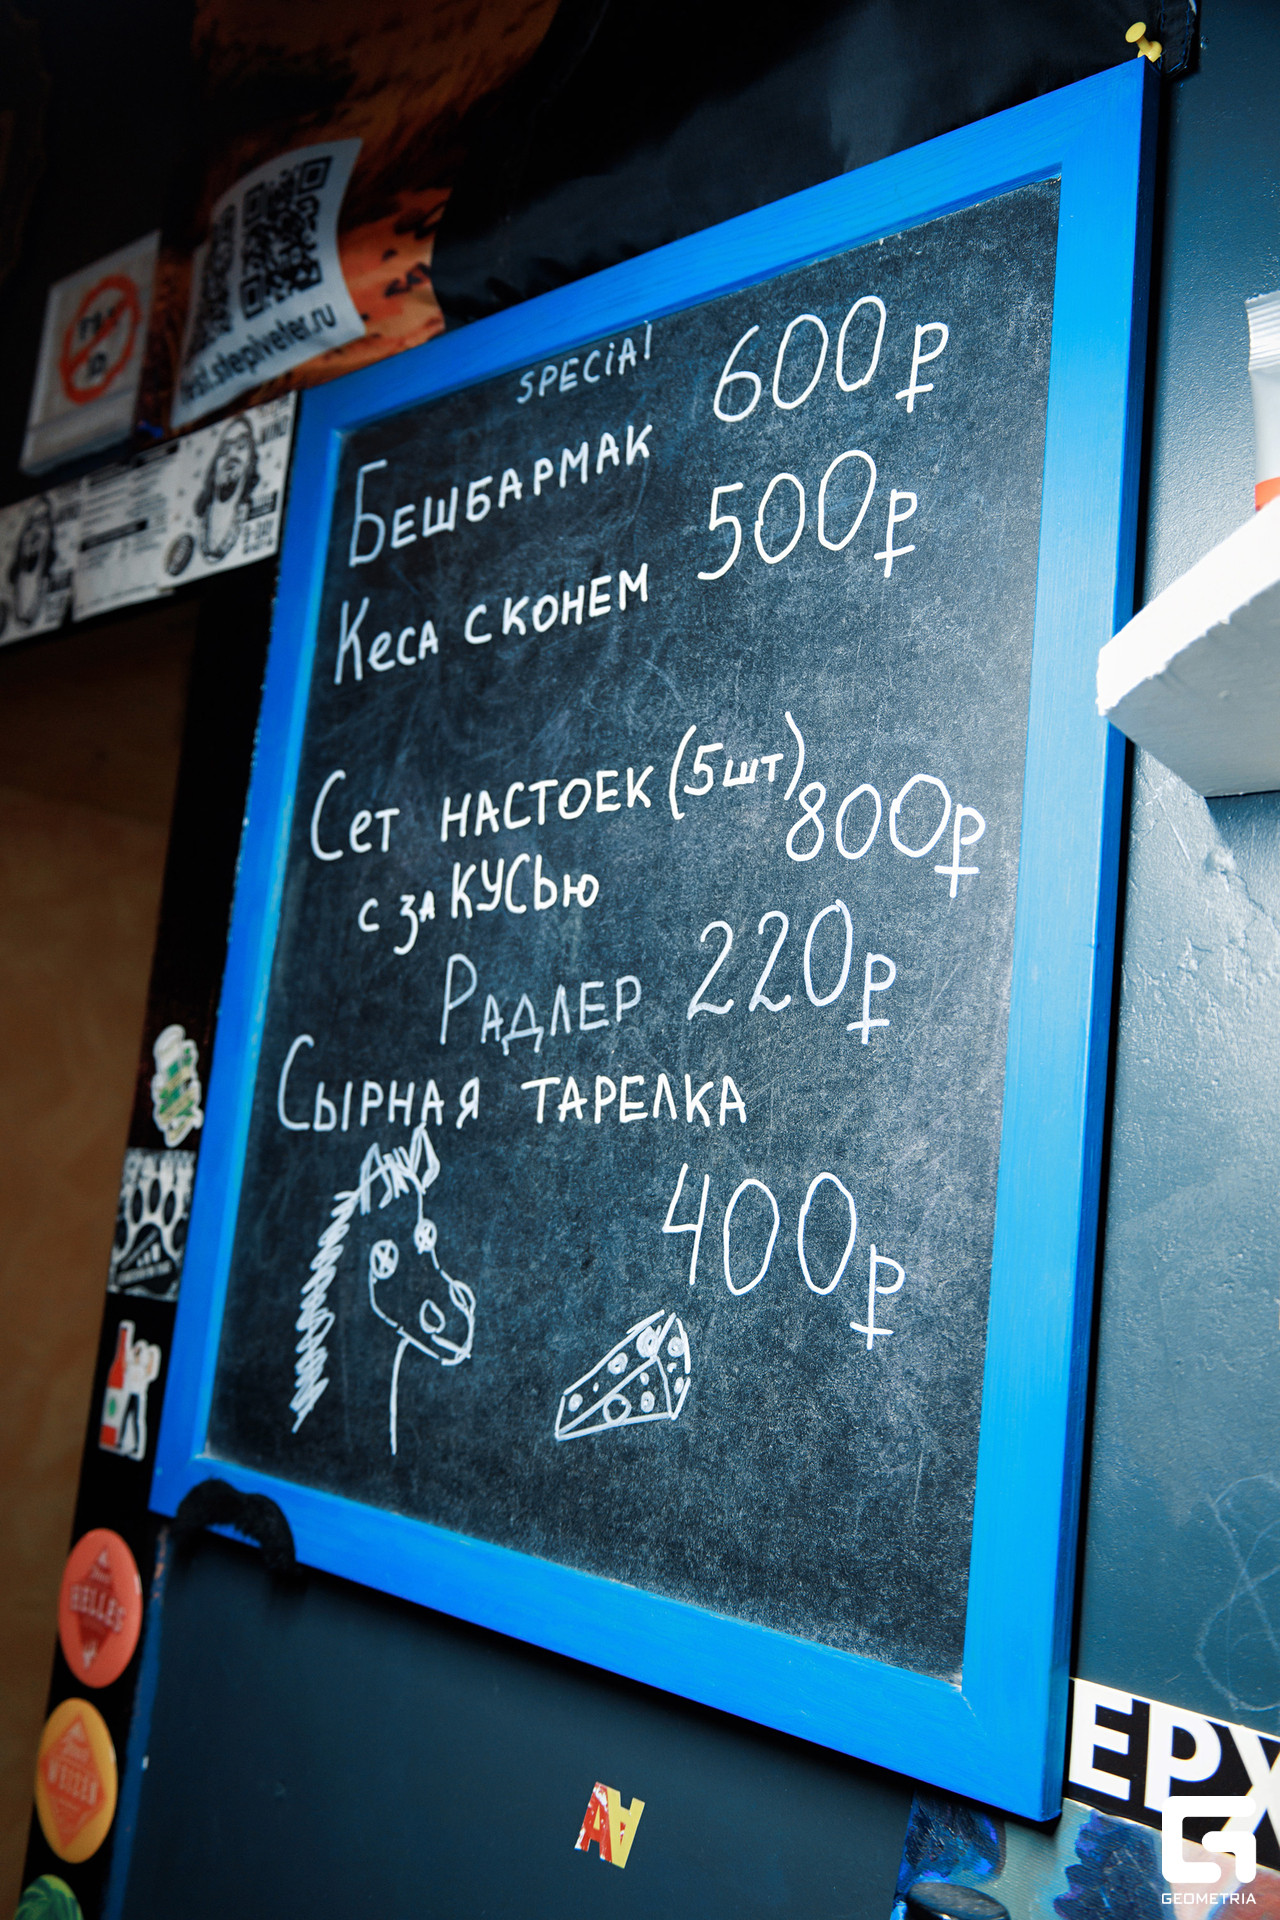 SPECiAl
600₽
БЕШБАРМАК
500₽
КЕСА С КОНЕМ
СЕТ НАСТОЕК (5шт)
800₽
С ЗАКУСЬЮ
РАДЛЕР 220₽
СЫРНАЯ ТАРЕЛКА
400₽
HELLES
WEIZEN
ЕРХ
GEOMETRIA